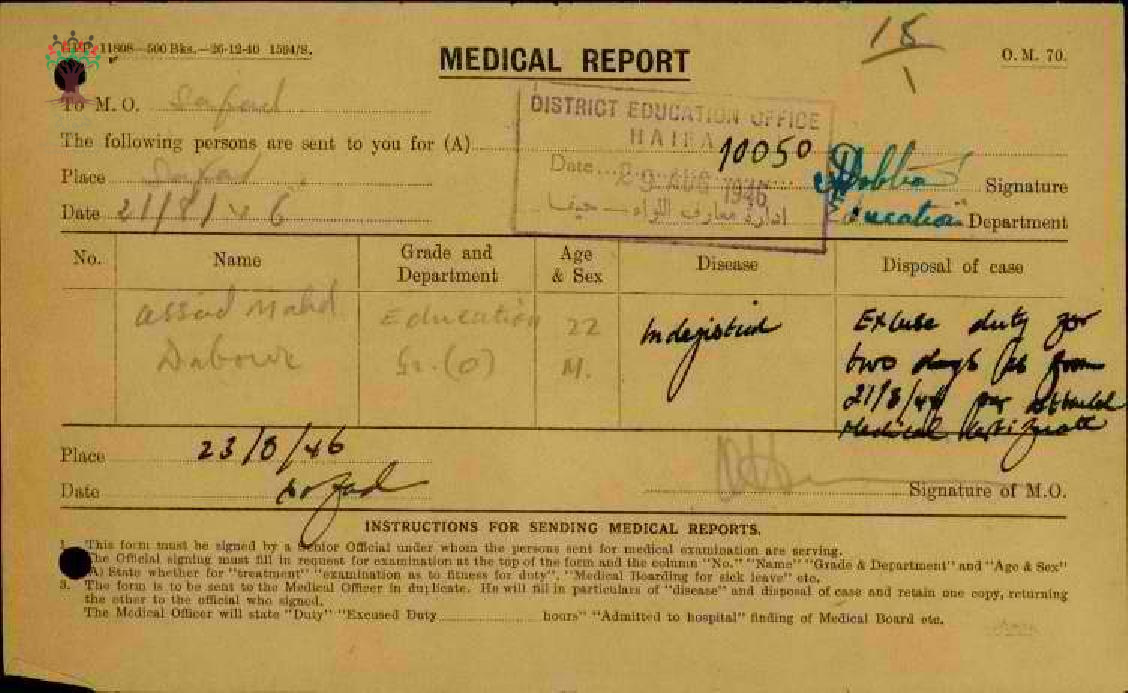 11808—500 Bks.—26-12-40 1594/S.
MEDICAL REPORT
18/1
O. M. 70.
To M. O. Safad
DISTRICT EDUCATION OFFICE
HAIFA
The following persons are sent to you for (A)
10050
Date 29 AUG 1946
ادارة معارف اللواء — حيفا
Place Safad
Signature
Date 21/8/46
Education Department
No. Name Grade and Department Age & Sex Disease Disposal of case
Assad Mahd Education 22 Indigestion Excuse duty for
Gr. (O) M. two days as from
21/8/46 per attached
Medical Certificate
Place 23/8/46
Date Safad
Signature of M.O.
INSTRUCTIONS FOR SENDING MEDICAL REPORTS.
1. This form must be signed by a Senior Official under whom the persons sent for medical examination are serving.
The Official signing must fill in request for examination at the top of the form and the column "No." "Name" "Grade & Department" and "Age & Sex"
(A) State whether for "treatment" "examination as to fitness for duty", "Medical Boarding for sick leave" etc.
3. The form is to be sent to the Medical Officer in duplicate. He will fill in particulars of "disease" and disposal of case and retain one copy, returning
the other to the official who signed.
The Medical Officer will state "Duty" "Excused Duty hours" "Admitted to hospital" finding of Medical Board etc.